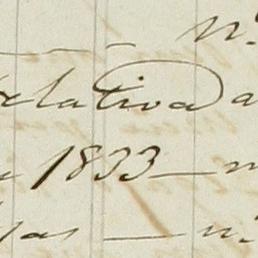 n.
relativa a
1833 — n
as — n.